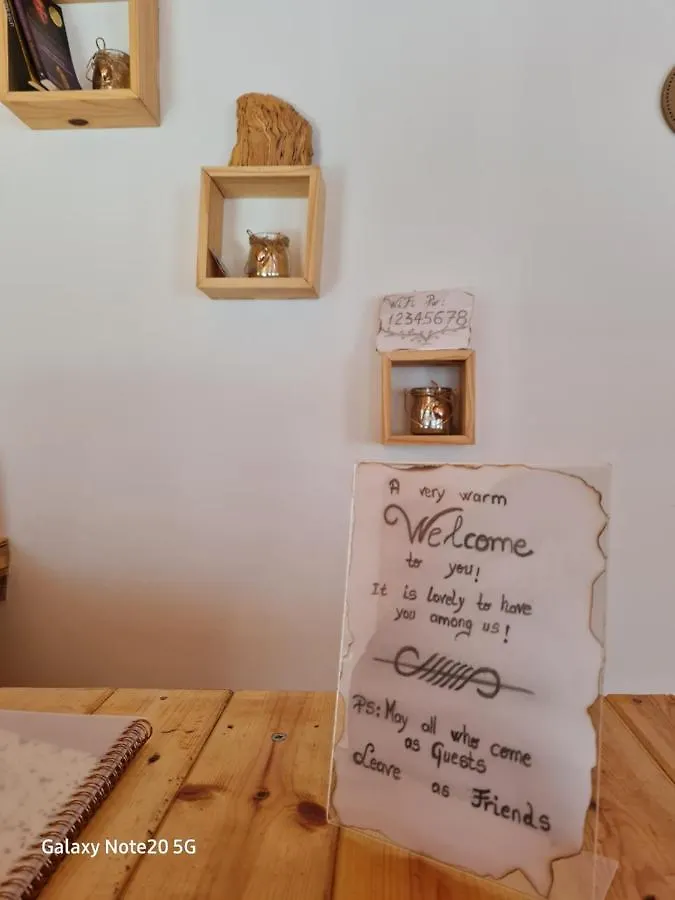 WiFi Pw:
12345678
A very warm
Welcome
to you!
It is lovely to have
you among us!
PS: May all who come
as Guests
Leave as Friends
Galaxy Note20 5G